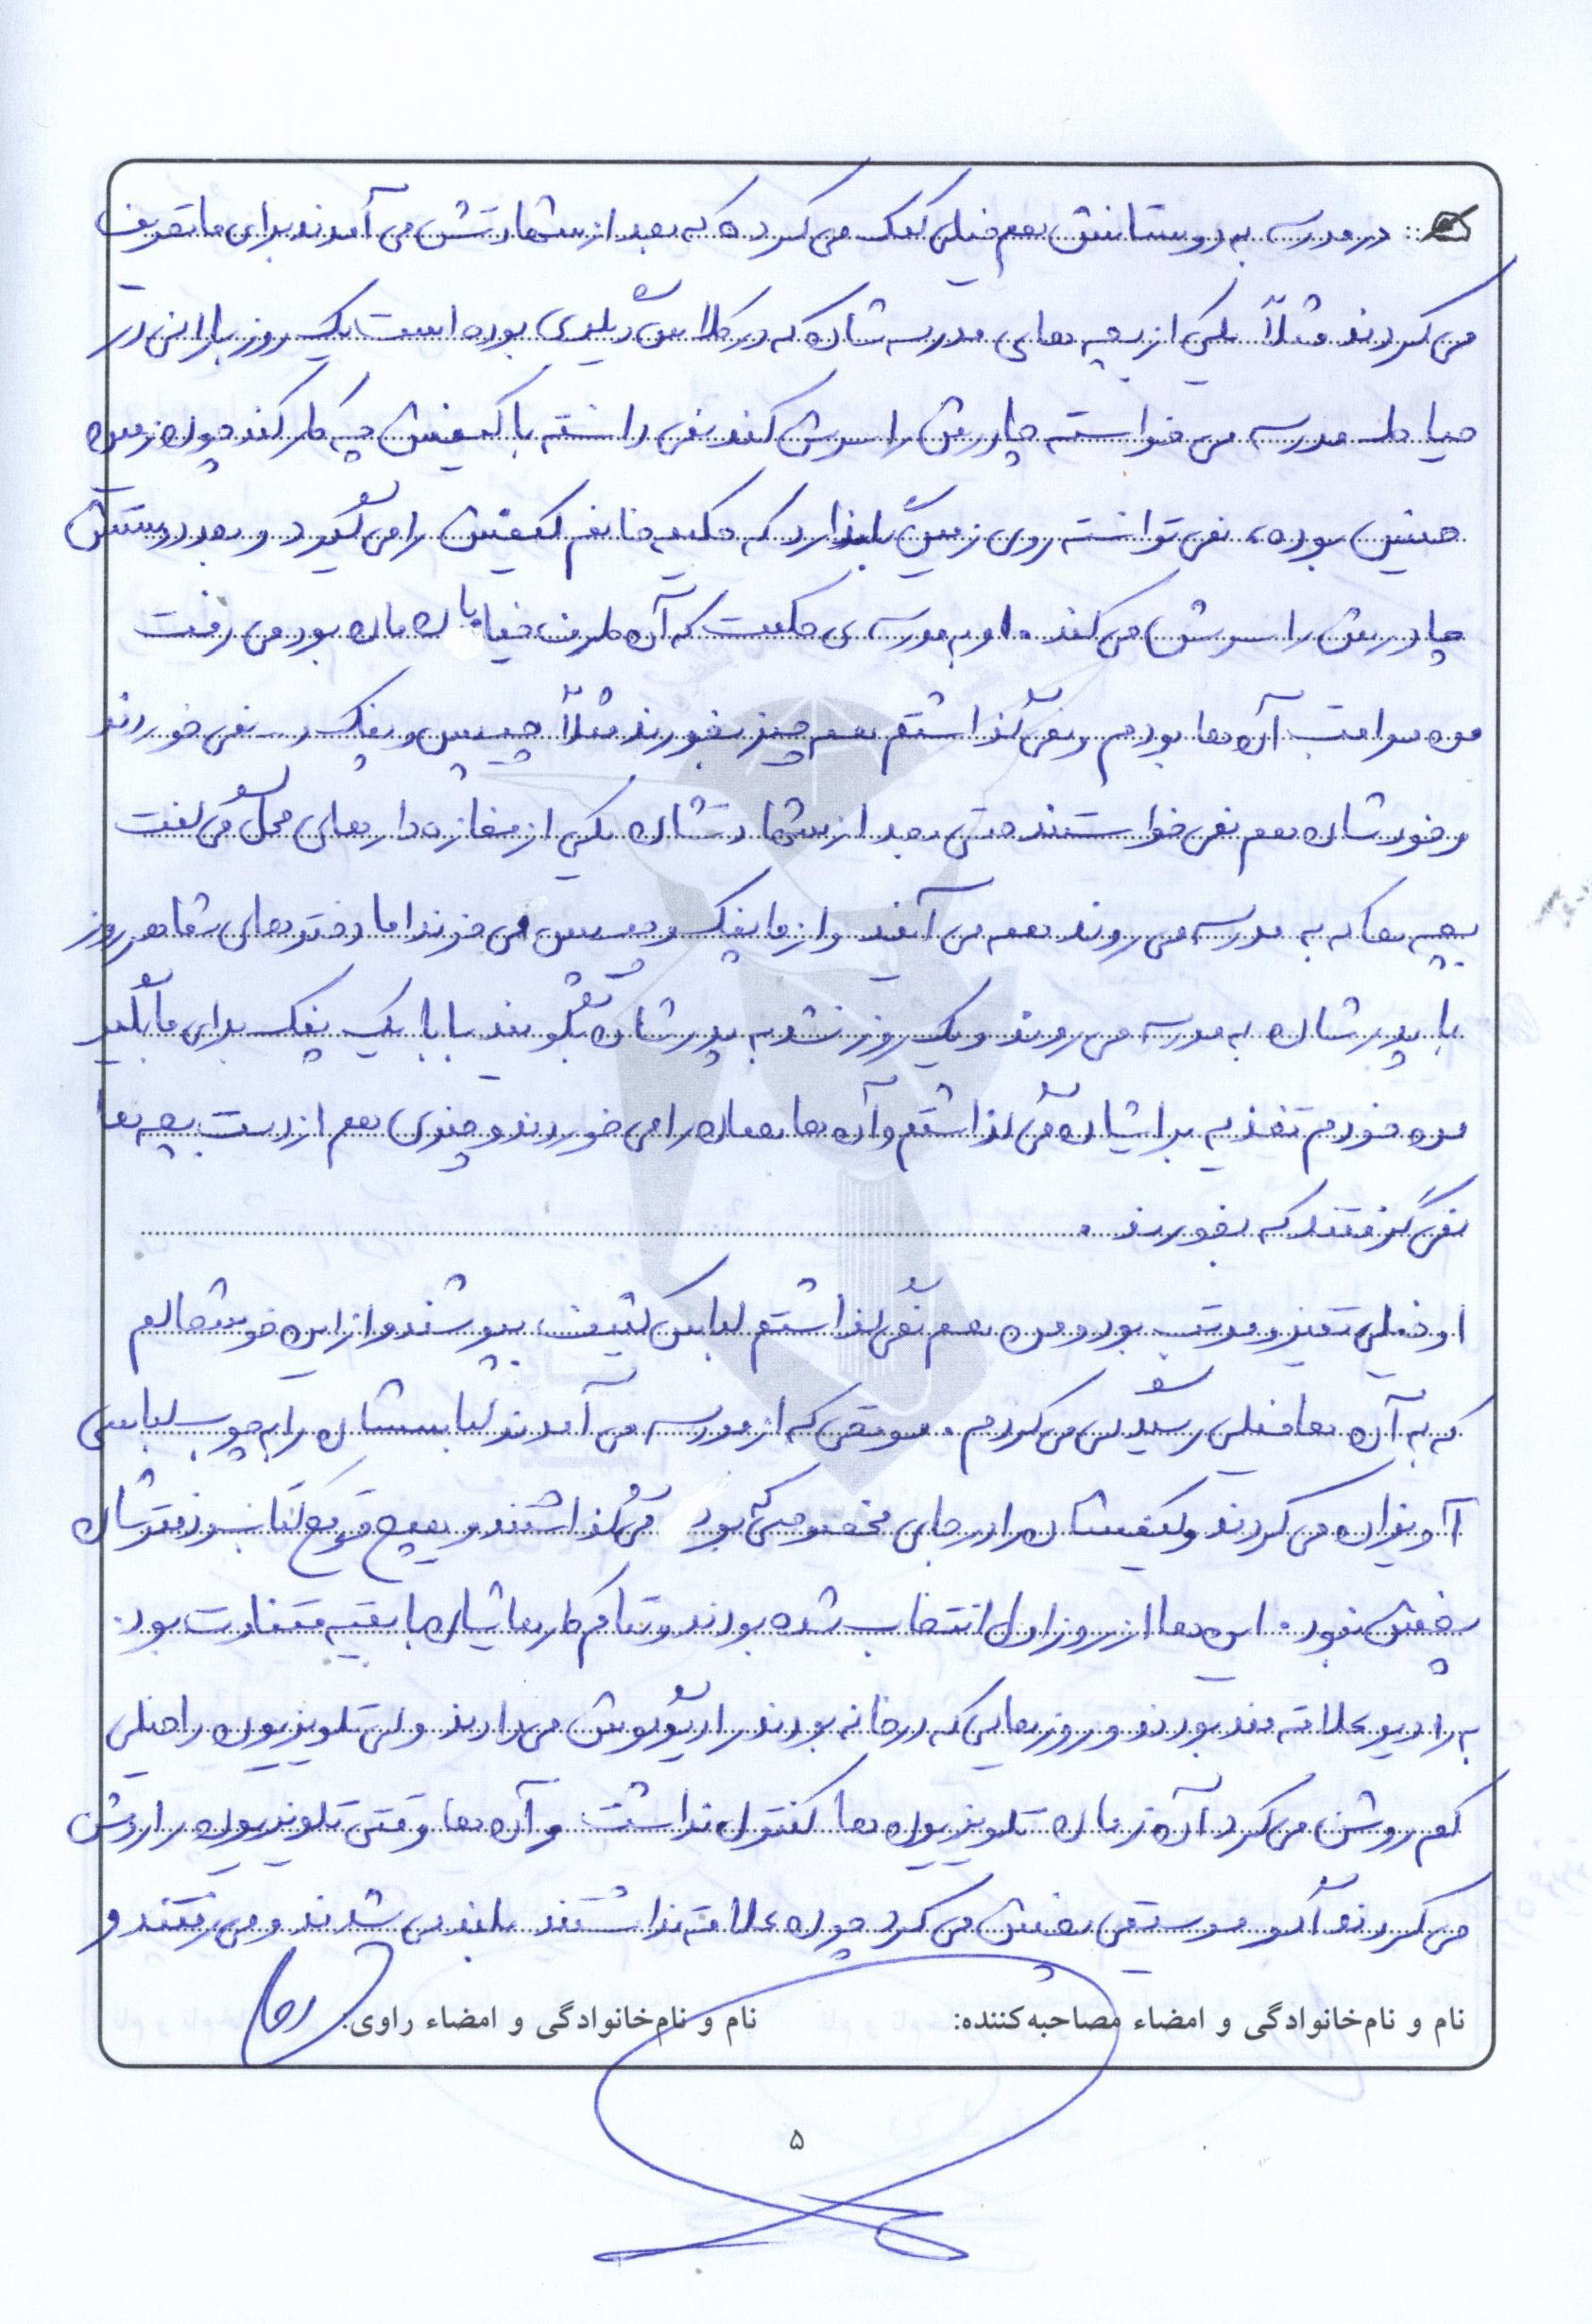 در مدرسه به دوستانش هم خیلی کمک می کرده که بعد از شهادتش می آمدند برای ما تعریف
می کردند مثلاً یکی از بچه های مدرسه شان که در کلاس دیگری بوده است یک روز بارانی در
حیاط مدرسه می خواسته چادرش را سرش کند نمی دانسته با کیفش چه کار کند چون زمین
خیس بوده، نمی توانسته روی زمین بگذارد که حکیمه خانم کیفش را می گیرد و بعد دوستش
چادرش را سرش می کند. او به مدرسه ی حکمت که آن طرف خیابان مان بود می رفت
من مراقب آن ها بودم و نمی گذاشتم هم چیز بخورند مثلاً چیپس و پفک و نمی خوردند
و خودشان هم نمی خواستند حتی بعد از شهادتشان یکی از مغازه دارهای محل می گفت
بچه ها که به مدرسه می روند همه می آیند و از ما پفک و چیپس می خرند اما دخترهای شما هر روز
با پدرشان به مدرسه می روند و یک روز نشد به پدرشان بگویند بابا یک پفک برای ما بگیر
من خودم تغذیه برایشان می گذاشتم و آن ها همان را می خوردند و چیزی هم از دست بچه ها
نمی گرفتند که بخورند.
او خیلی تمیز و مرتب بود و من هم نمی گذاشتم لباس کثیف بپوشند و از این خوشحالم
که به آن ها خیلی رسیدگی می کردم. موقعی که از مدرسه می آمدند لباسشان را به چوب لباسی
آویزان می کردند و کیفشان را در جای مخصوصی که بود می گذاشتند و هیچ موقع کتاب و دفترشان
پخش نبود. این ها از روز اول انتخاب شده بودند و تمام کارهایشان با بقیه متفاوت بود.
به رادیو علاقه مند بودند و روزهایی که در خانه بودند رادیو گوش می دادند ولی تلویزیون را خیلی
کم روشن می کرد آن زمان تلویزیون ها کنترل نداشت و آن ها وقتی تلویزیون را روشن
می کردند اگر موسیقی پخش می کرد چون علاقه نداشتند بلند می شدند و می رفتند و
نام و نام‌خانوادگی و امضاء مصاحبه‌کننده: نام و نام‌خانوادگی و امضاء راوی:
۵